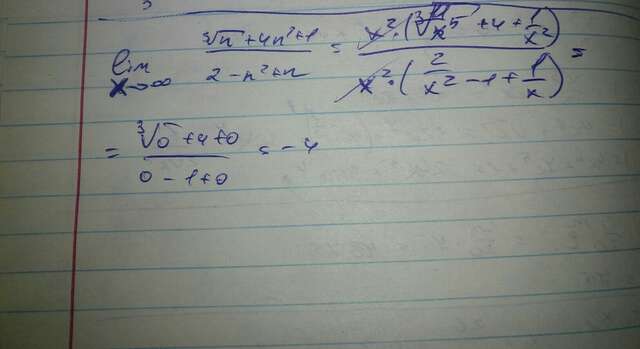 lim x→∞ (∛n + 4n² + 1)/(2 - n² + n) = x²·(∛(1/x⁵) + 4 + 1/x²)/x²·(2/x² - 1 + 1/x) =
= (∛0 + 4 + 0)/(0 - 1 + 0) = -4